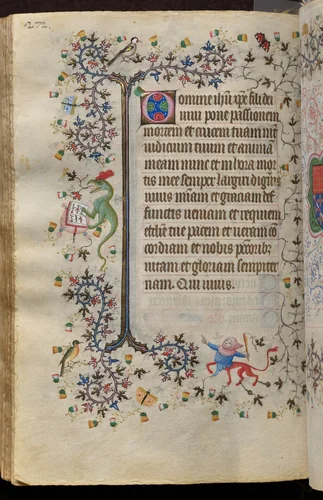 272.
Domine ihu xpe fili dei
uiui pone passionem
mortem et crucem tuam int
iudicium tuum et animã
meam nunc et in hora mor
tis mee semper largiri digneris
uiuis miam et graciam de
functis ueniam et requiem
eccl'ie tue pacem et ueram cõ
cordiam et nobis pctoribus
uitam et gloriam sempiter
nam. Qui uiuis.